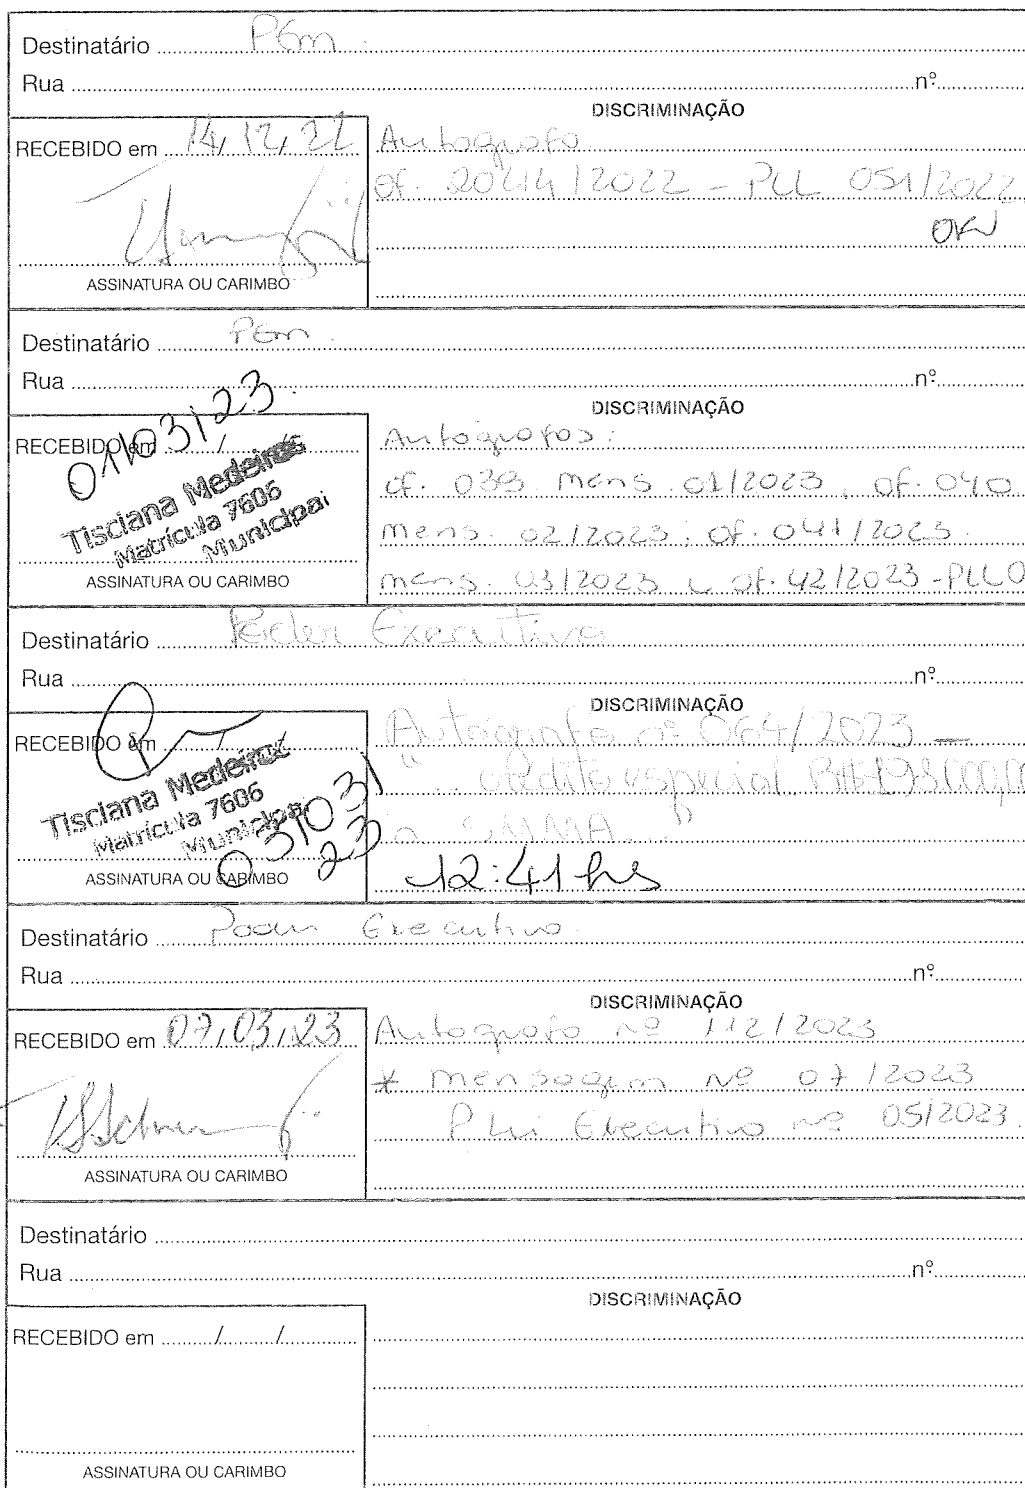 Destinatário PGm.
Rua nº
DISCRIMINAÇÃO
RECEBIDO em 14, 12, 22
Autografo
Of. 2044/2022 - PLL 051/2022
OK
ASSINATURA OU CARIMBO
Destinatário PGm.
Rua nº
DISCRIMINAÇÃO
RECEBIDO em / /
01/03/23.
Tisciana Medeiros
Matrícula 7606
Municipal
ASSINATURA OU CARIMBO
Autógrafos:
of. 039 mens. 01/2023, of. 040
mens. 02/2023; of. 041/2023.
mens. 03/2023 e of. 42/2023 - PLL 0
Destinatário Poder Executivo
Rua nº
DISCRIMINAÇÃO
RECEBIDO em / /
Tisciana Medeiros
Matrícula 7606
Municipal
03/03/
23
ASSINATURA OU CARIMBO
Autógrafo nº 064/2023 —
"... crédito especial
a SMMA..."
12:41 hs
Destinatário Poder Executivo.
Rua nº
DISCRIMINAÇÃO
RECEBIDO em 07, 03, 23
ASSINATURA OU CARIMBO
Autografo nº 112/2023
* mensagem nº 07/2023
P Lei Executivo nº 05/2023.
Destinatário
Rua nº
DISCRIMINAÇÃO
RECEBIDO em / /
ASSINATURA OU CARIMBO